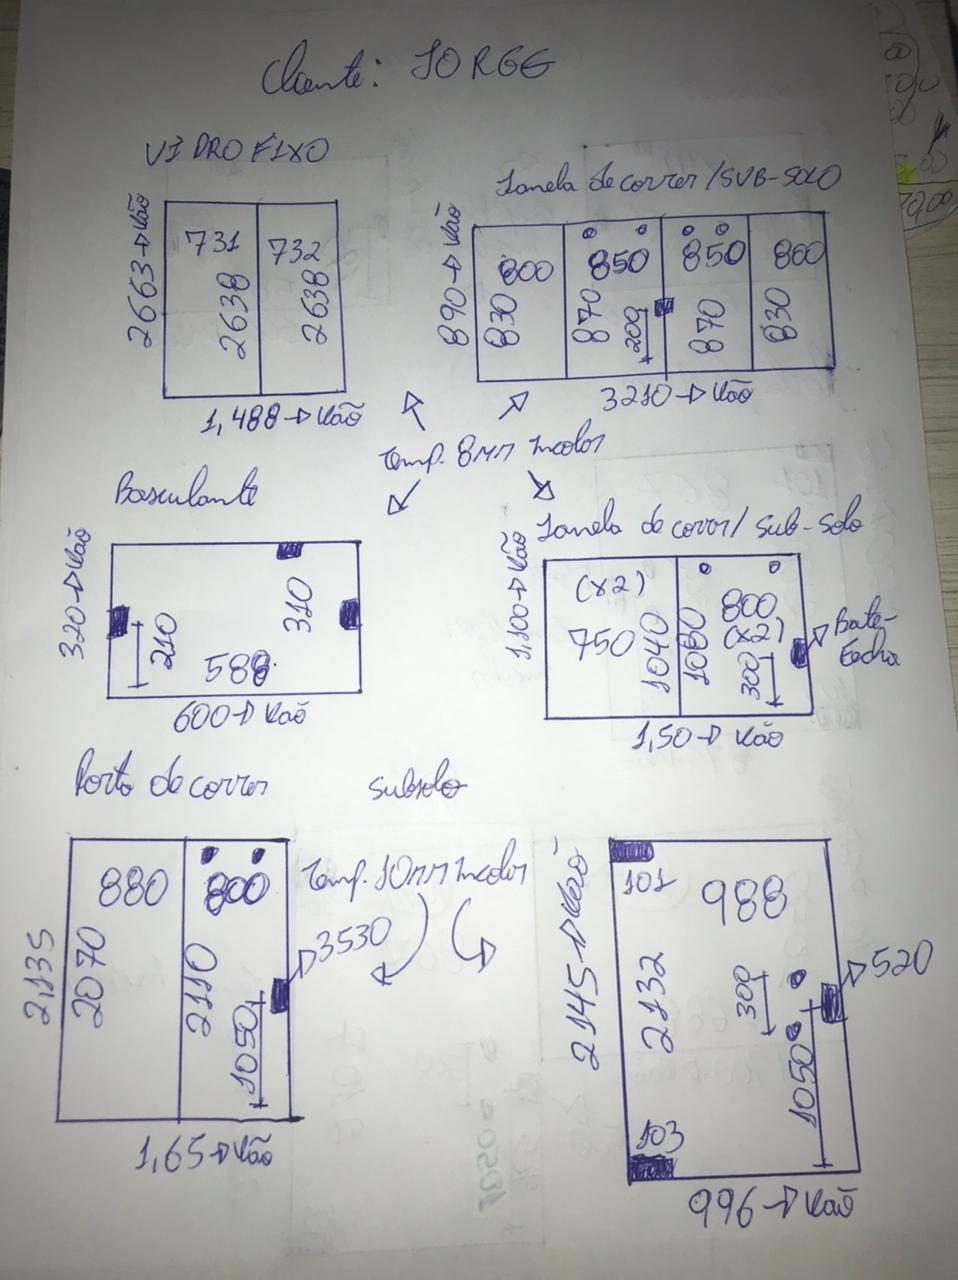 Cliente: JORGE
VIDRO FIXO
2663→Vão
731
732
2638
2638
1,488→Vão
Janela de correr/SUB-SOLO
890→Vão
800
850
850
800
830
870
200
870
830
3210→Vão
Temp. 8mm Incolor
Basculante
320→Vão
210
310
588
600→Vão
Janela de correr/ Sub-Solo
1,100→Vão
(x2)
750
1040
1080
800
(x2)
300
Bate-
Fecha
1,50→Vão
Porta de correr
Subsolo
2,135
880
2070
800
2110
1050
3530
1,65→Vão
Temp. 10mm Incolor
2145→Vão
101
988
2132
300
520
1050
103
996→Vão